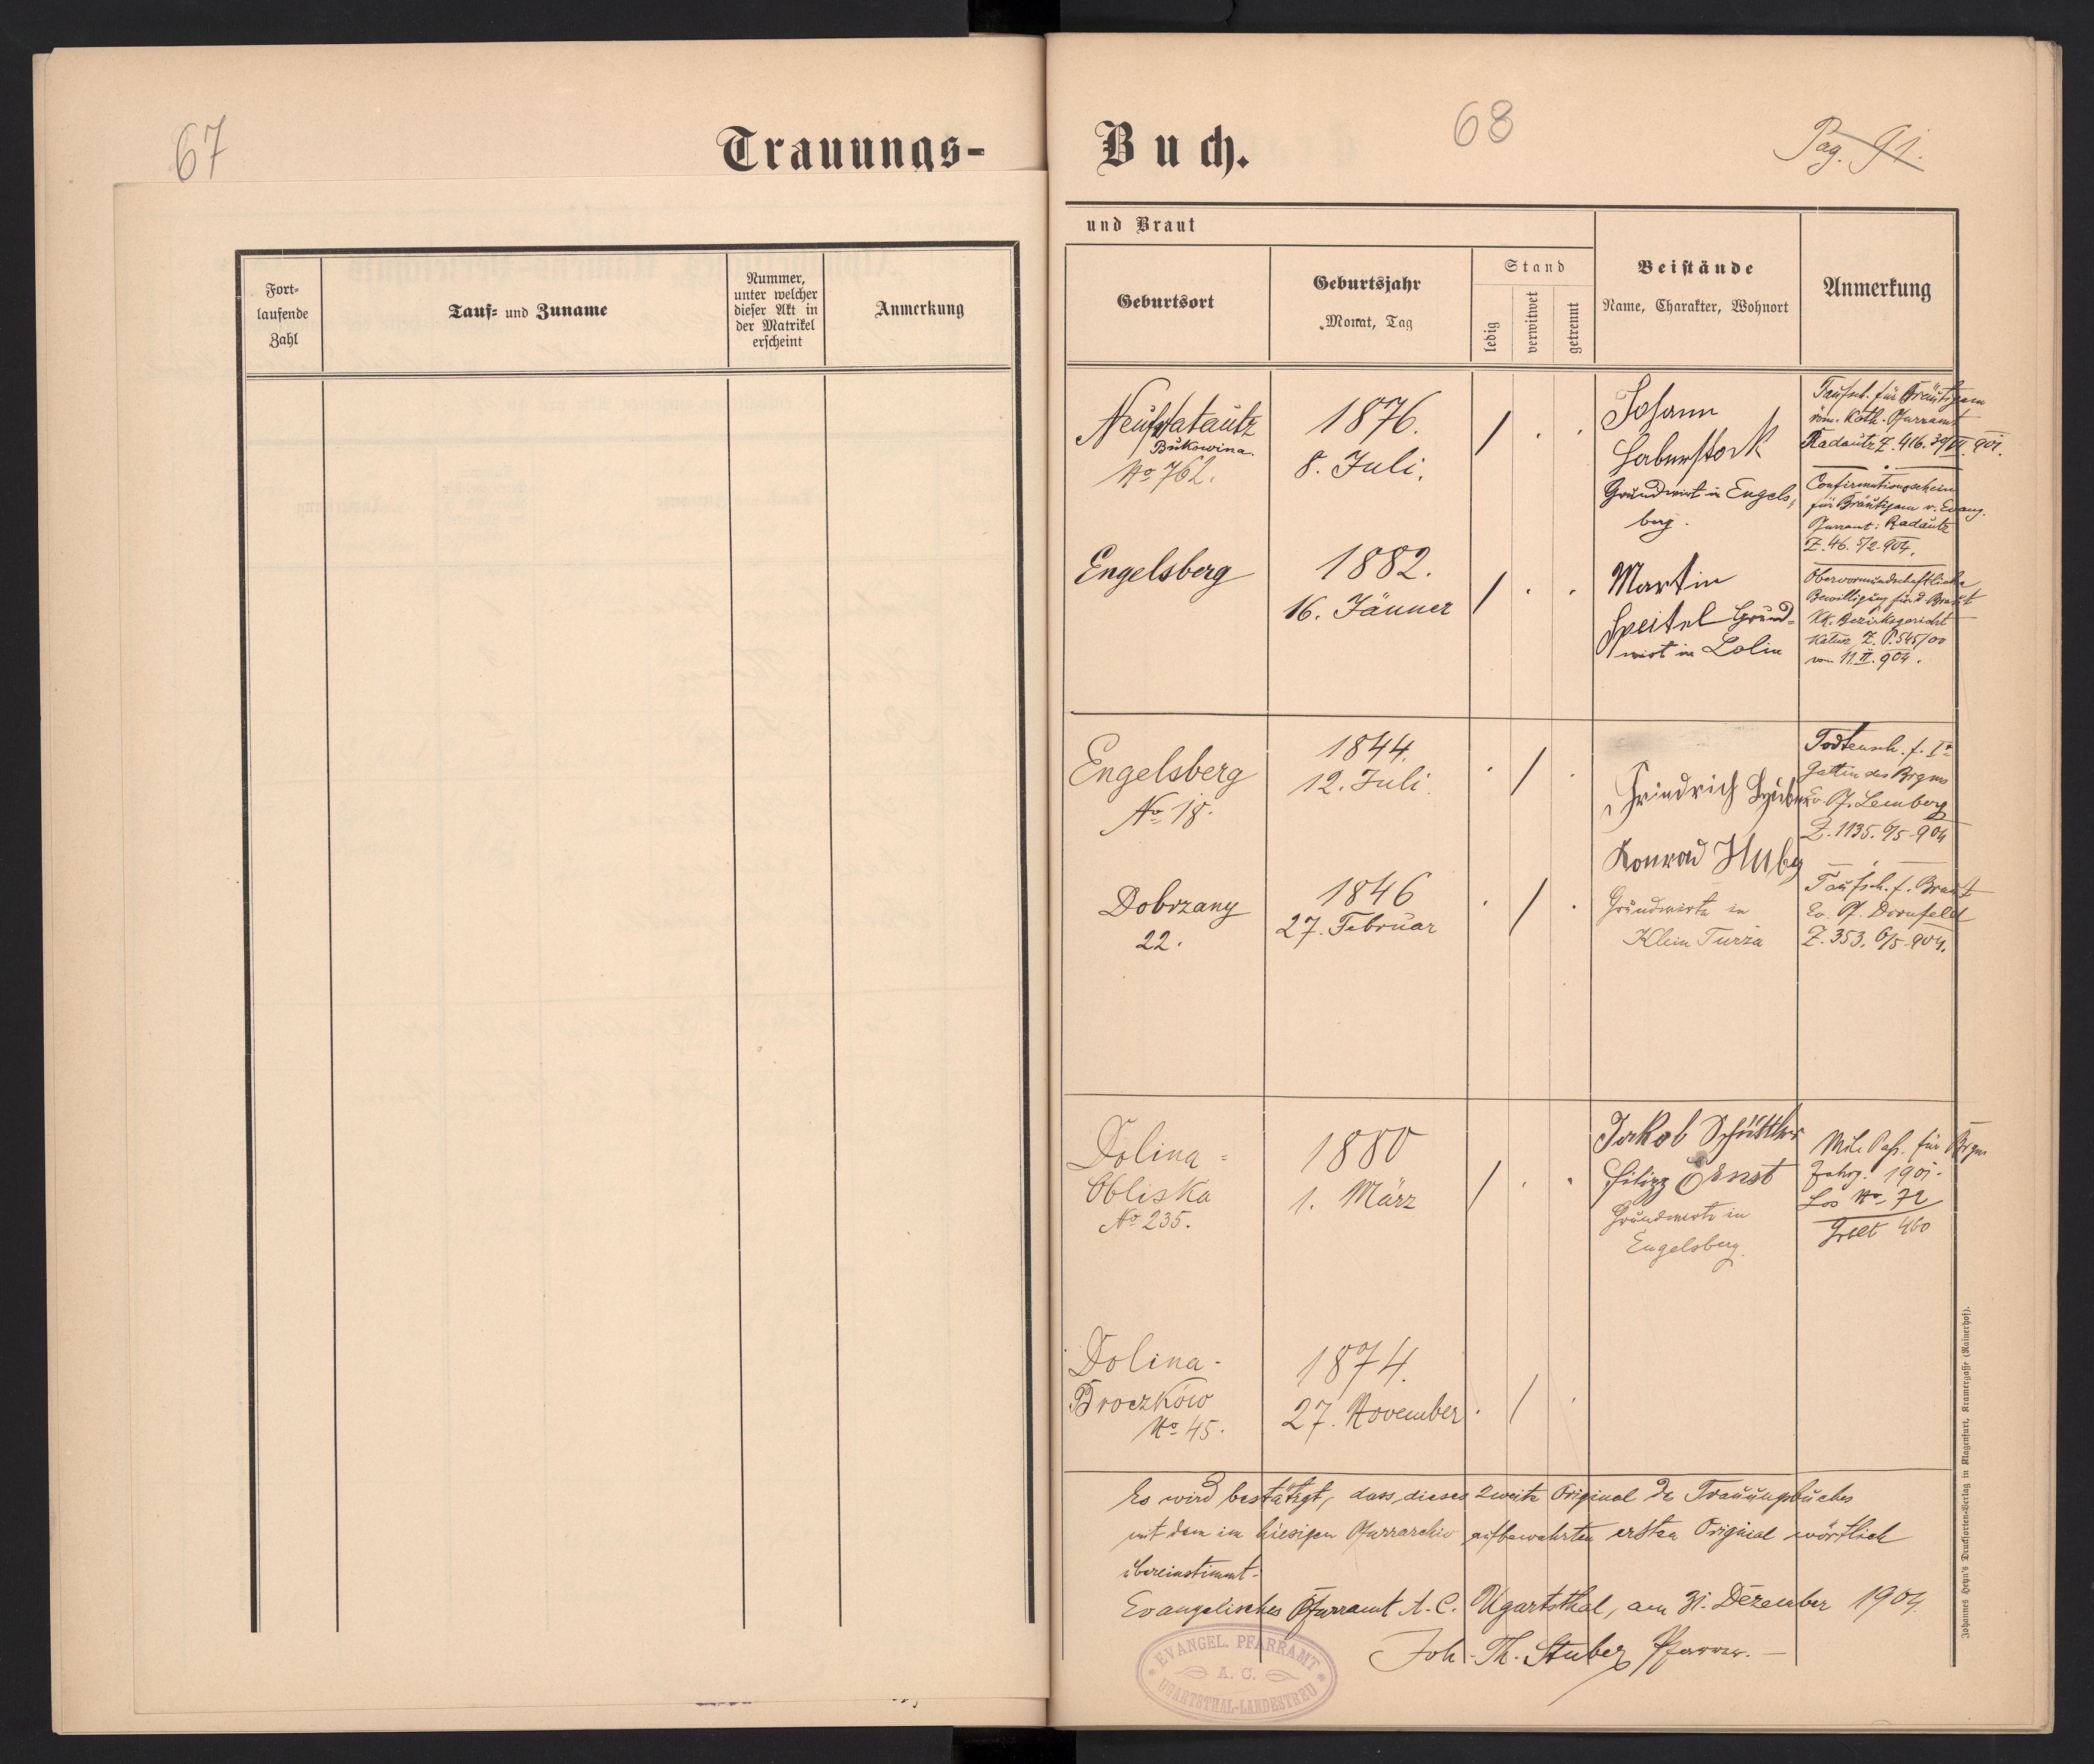 67
Trauungs-
Fort-
laufende
Zahl
Tauf- und Zuname
Nummer,
unter welcher
dieser Akt in
der Matrikel
erscheint
Anmerkung
Buch.
68
Pag. 91.
und Braut
Geburtsort
Geburtsjahr
Monat, Tag
Stand
ledig
verwitwet
getrennt
Beistände
Name, Charakter, Wohnort
Anmerkung
Bukowina.
No 762.
1876.
8. Juli.
Johann
Haberstock
Grundwirt in Engels-
berg.
Taufsch. für Bräutigam
röm. Kath. Pfarramt
Radautz Z. 416.
Confirmationsschein
für Bräutigam v. Evang.
Pfarramt: Radautz
Z. 46. 5/2. 904.
Engelsberg
1882.
16. Jänner
Martin
Speitel Grund-
wirt in Dolin
Obervormundschaftliche
Bewilligung für d. Braut
KK. Bezirksgericht
Kalusz Z. P. 545/00
vom 11. II. 904.
Engelsberg
No 18.
1844.
12. Juli.
Friedrich
Todtensch. f. I.
Gattin des Brgms
Ev. Pf. Lemberg
Z. 1135. 6/5. 904
Konrad Huber
Grundwirte in
Klein Turza
Dobrzany
22.
1846
27. Februar
Taufsch. f. Braut
Ev. Pf. Dornfeld
Z. 353. 6/5. 904.
Dolina-
Obliska
No 235.
1880
1. März
Jakob Schüttler
Filipp Ernst
Grundwirte in
Engelsberg.
Mil. Paß. für Brgm
Jahrg. 1901.
Los No 72
Grblt 460
Dolina-
Broczków
No 45.
1874.
27. November
Es wird bestätigt, dass dieses zweite Original des Trauungsbuches
mit dem im hiesigen Pfarrarchiv aufbewahrten ersten Original wörtlich
übereinstimmt.
Evangelisches Pfarramt A. C. Ugartsthal, am 31. Dezember 1904.
Joh. Th. Stuber Pfarrer.
EVANGEL. PFARRAMT
A. C.
UGARTSTHAL-LANDESTREU
Johannes Heyn's Drucksorten-Verlag in Klagenfurt, Kramergasse (Rainerhof).